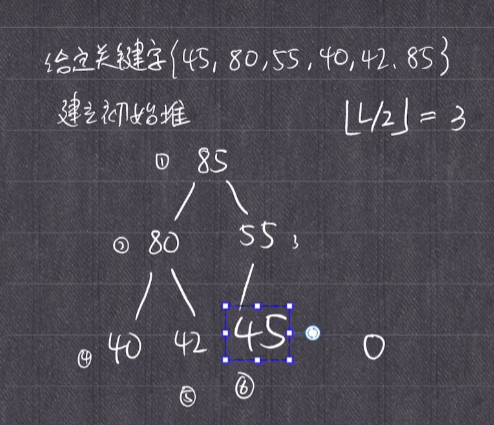 给定关键字{45, 80, 55, 40, 42, 85}
建立初始堆 ⌊L/2⌋ = 3
① 85
② 80 55 3
④ 40 42 45 0
⑤ ⑥